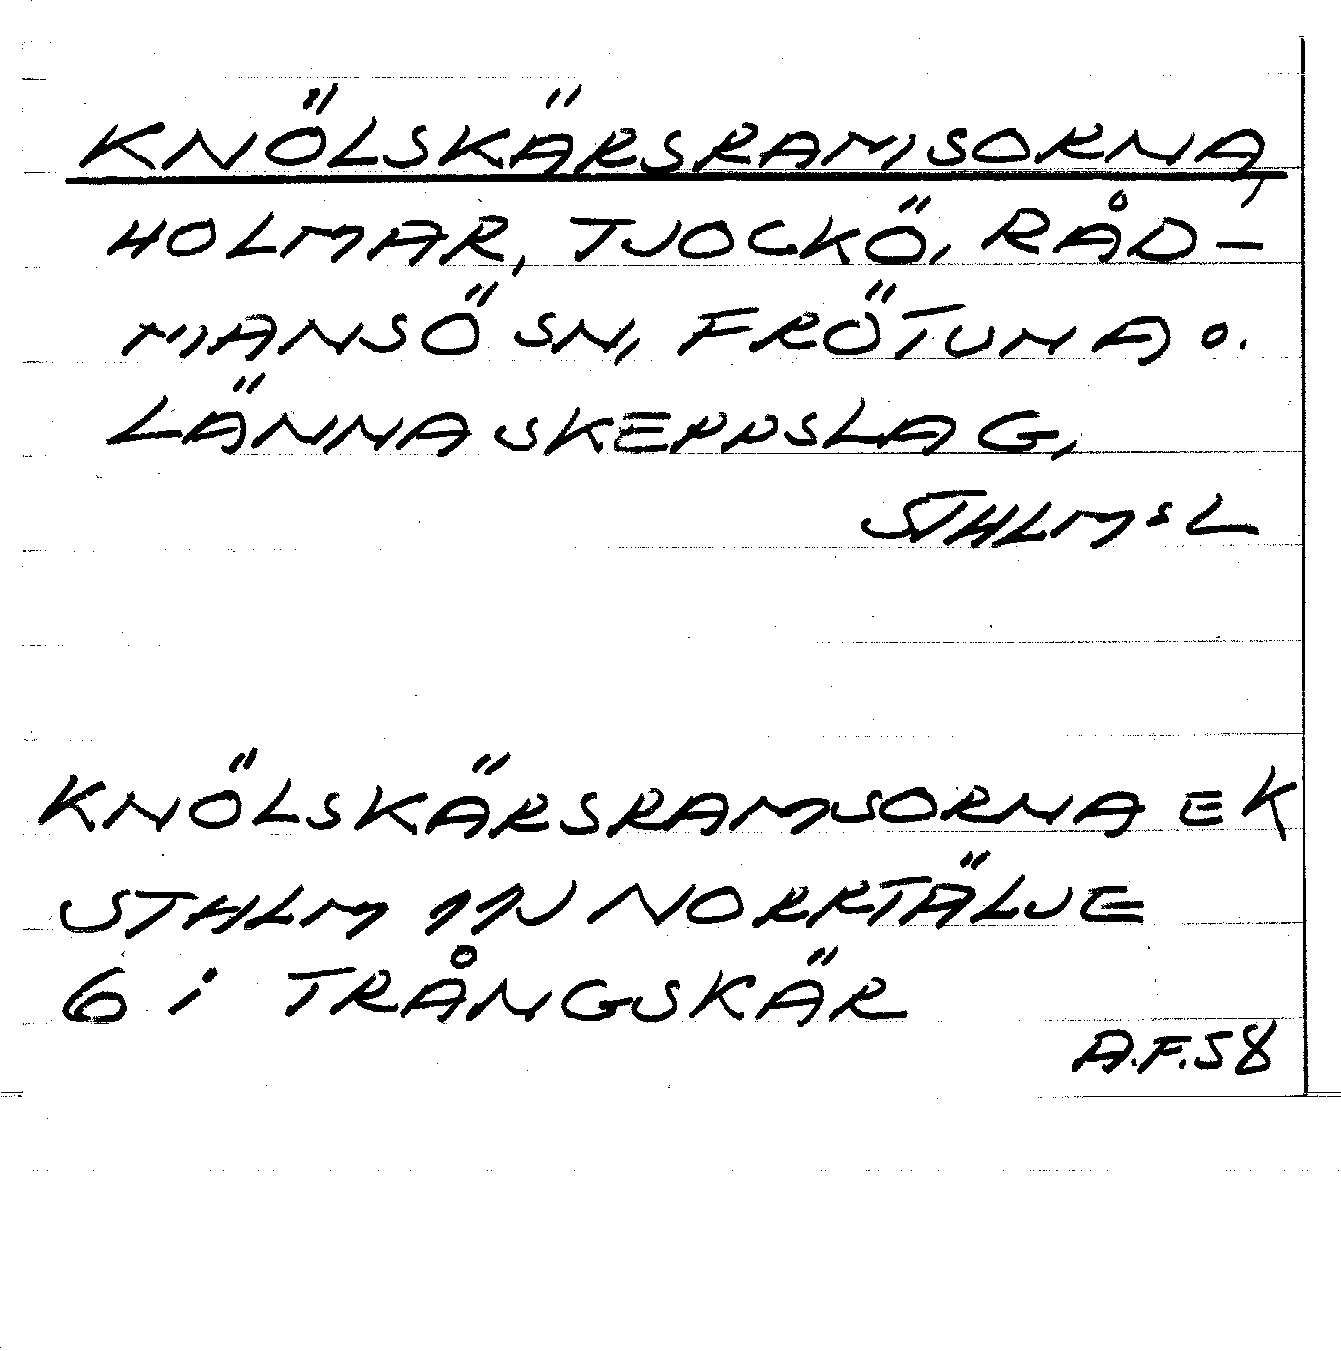 KNÖLSKÄRSRAMSORNA,
HOLMAR, TJOCKÖ, RÅD-
MANSÖ SN, FRÖTUNA O.
LÄNNA SKEPPSLAG,
STHLMS L
KNÖLSKÄRSRAMSORNA EK
STHLM 11N NORRTÄLJE
6 i TRÅNGSKÄR
A.F.58